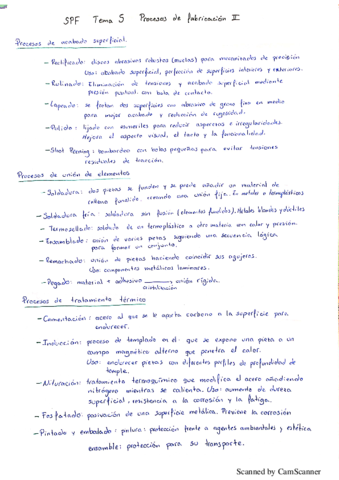 SPF Tema 5 Procesos de fabricación II
Procesos de acabado superficial.
- Rectificado: discos abrasivos robustos (muelas) para mecanizados de precisión
Uso: acabado superficial, perfección de superficies interiores y exteriores.
- Rulinado: Eliminación de tensiones y acabado superficial mediante
presión puntual con bola de contacto.
- Lapeado: se frotan dos superficies con abrasivo de grano fino en medio
para mejor acabado y reducción de rugosidad.
- Pulido: lijado con esmeriles para reducir asperezas e irregularidades.
Mejora el aspecto visual, el tacto y la funcionalidad.
- Shot Peening: bombardeo con bolas pequeñas para evitar tensiones
residuales de tracción.
Procesos de unión de elementos
- Soldadura: dos piezas se funden y se puede añadir un material de
relleno fundido, creando una unión fija. En metales o termoplásticos
- Soldadura fría: soldadura sin fusión Metales blandos y dúctiles
- Termosellado: soldado de un termoplástico a otro material con calor y presión.
- Ensamblado: unión de varias piezas siguiendo una secuencia lógica
para formar un conjunto.
- Remachado: unión de piezas haciendo coincidir sus agujeros.
Uso: componentes metálicos laminares.
- Pegado: material + adhesivo unión rígida.
Procesos de tratamiento térmico
- Cementación: acero al que se le aporta carbono a la superficie para
endurecer.
- Inducción: proceso de templado en el que se expone una pieza a un
campo magnético alterno que penetra el calor.
Uso: endurecer piezas con diferentes perfiles de profundidad de
temple.
- Nitruración: tratamiento termoquímico que modifica el acero añadiendo
nitrógeno mientras se calienta. Uso: aumento de dureza
superficial, resistencia a la corrosión y la fatiga.
- Fosfatado: pasivación de una superficie metálica. Previene la corrosión
- Pintado y embalado: pintura: protección frente a agentes ambientales y estética
ensamble: protección para su transporte.
Scanned by CamScanner